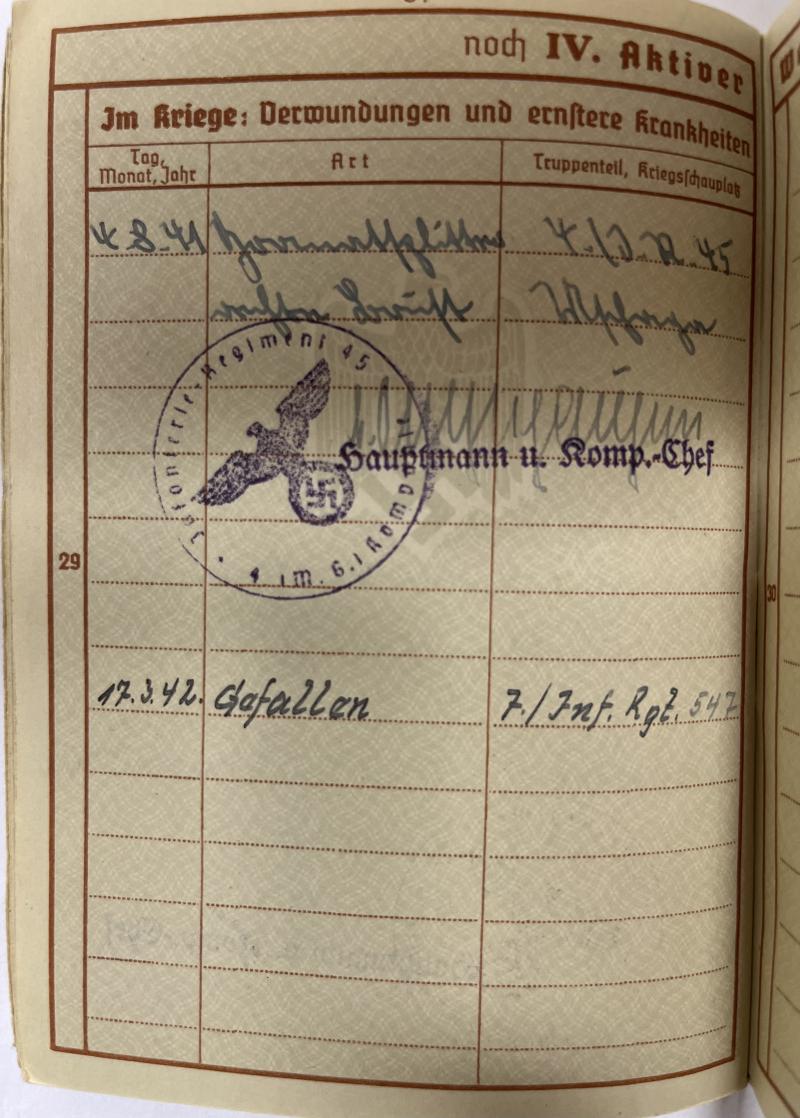 noch IV. Aktiver
Im Kriege: Verwundungen und ernstere Krankheiten
Tag, Monat, Jahr
Art
Truppenteil, Kriegsschauplatz
4.8.41 Granatsplitter 4./J.R. 45
rechte Brust
Infanterie-Regiment 45
Hauptmann u. Komp.-Chef
29
30
17.3.42. Gefallen 7./Inf. Rgt. 547